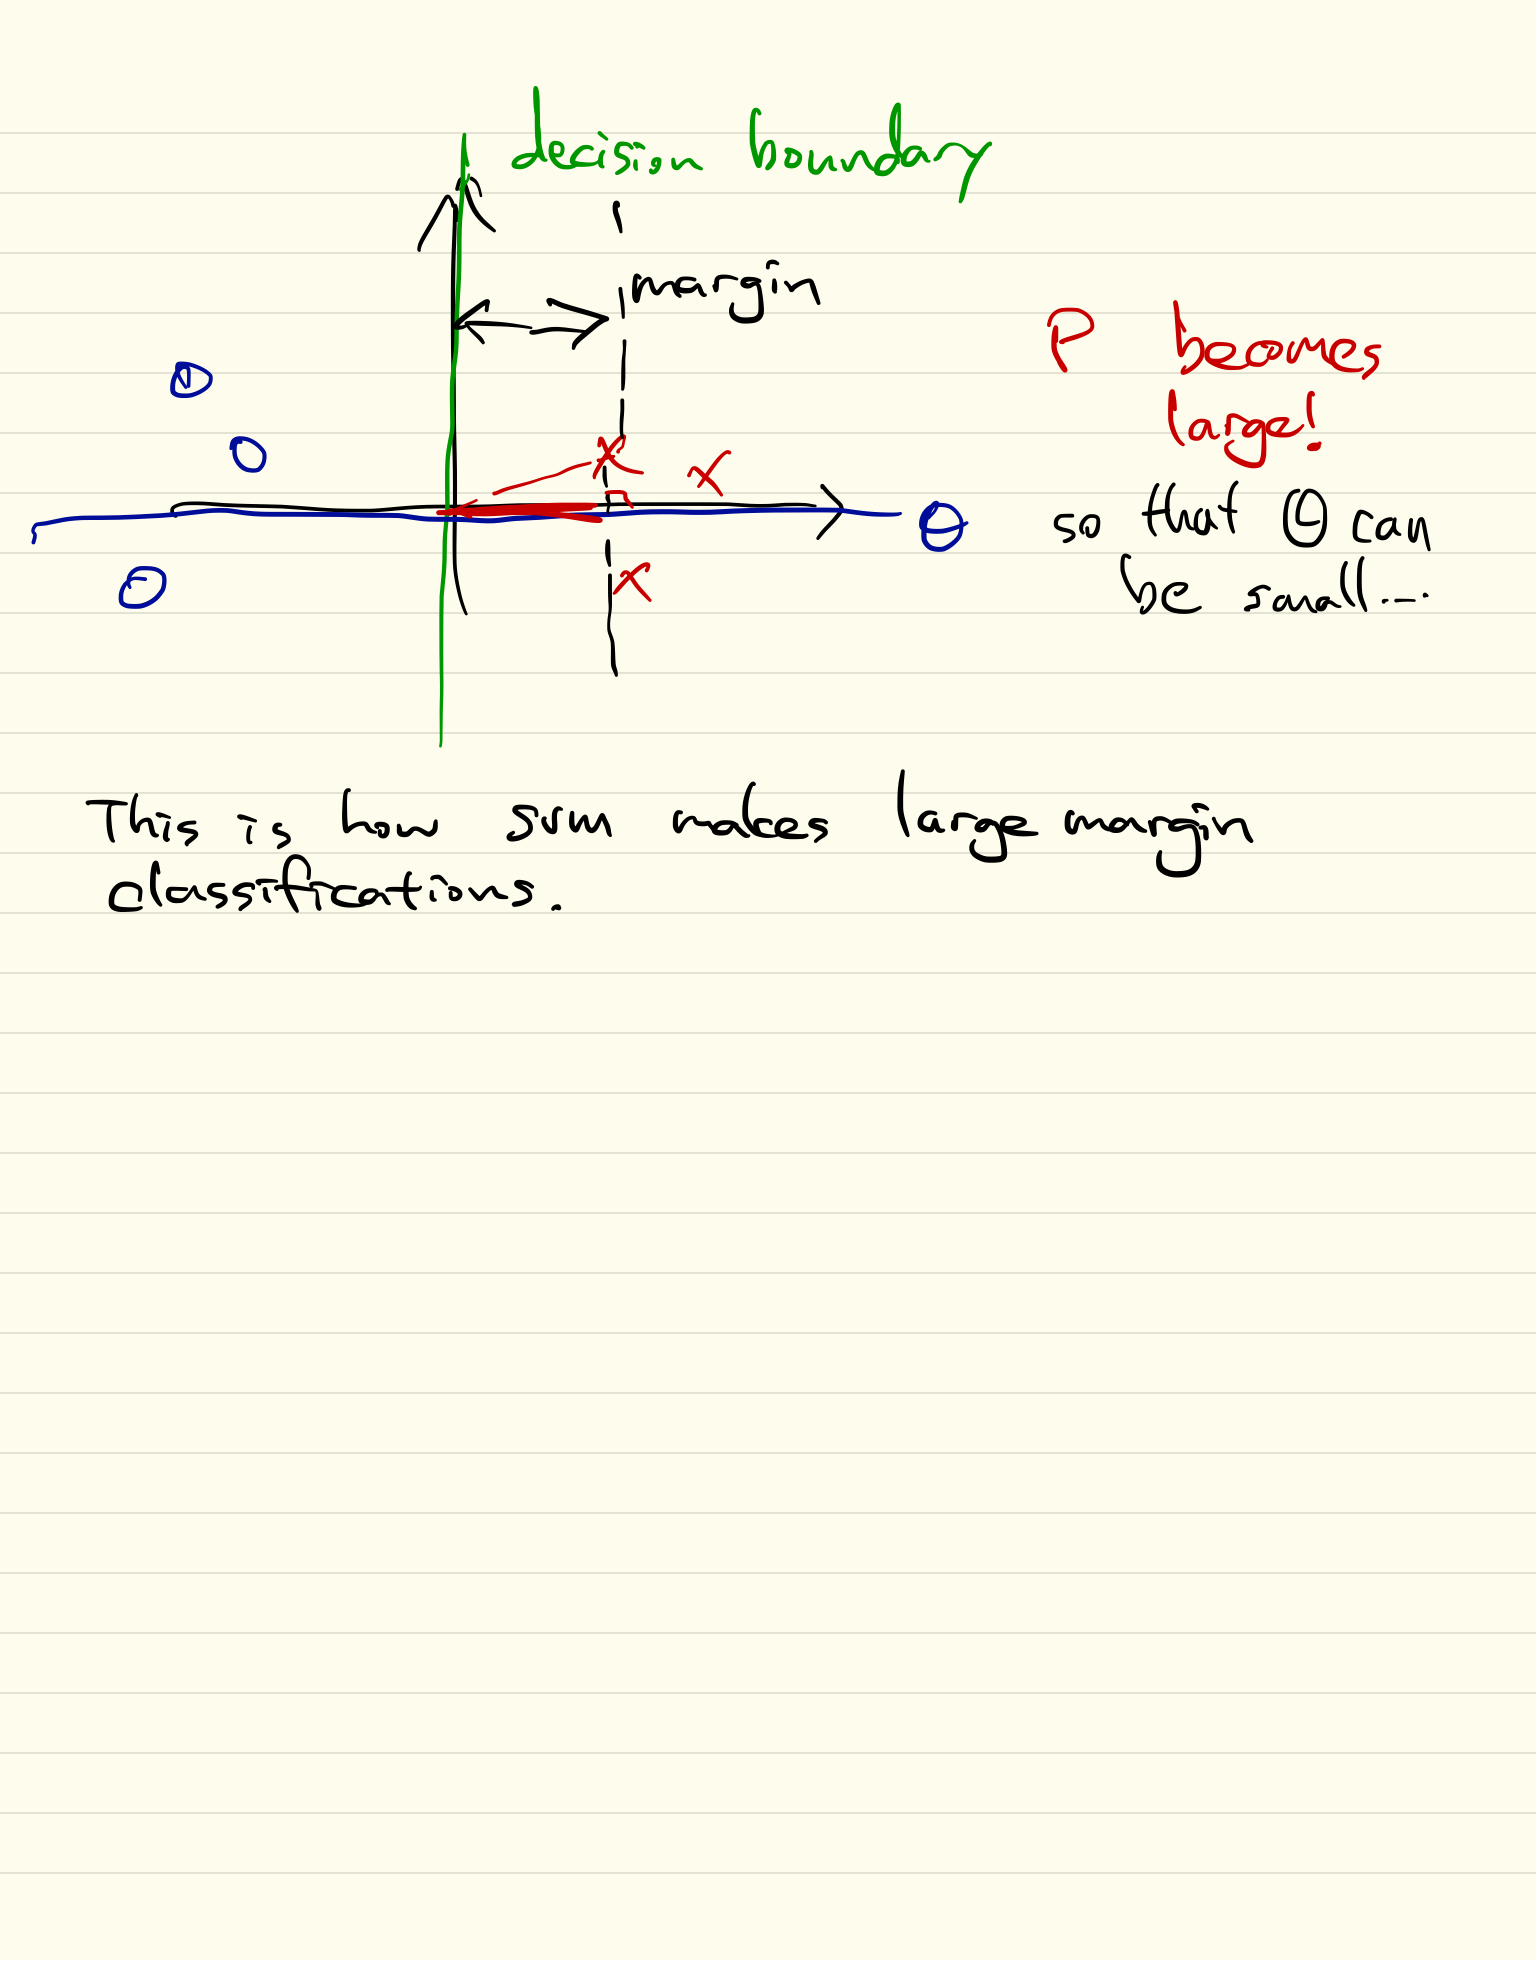 decision boundary
margin
P becomes
large!
θ
so that θ can
be small...
This is how svm makes large margin
classifications.